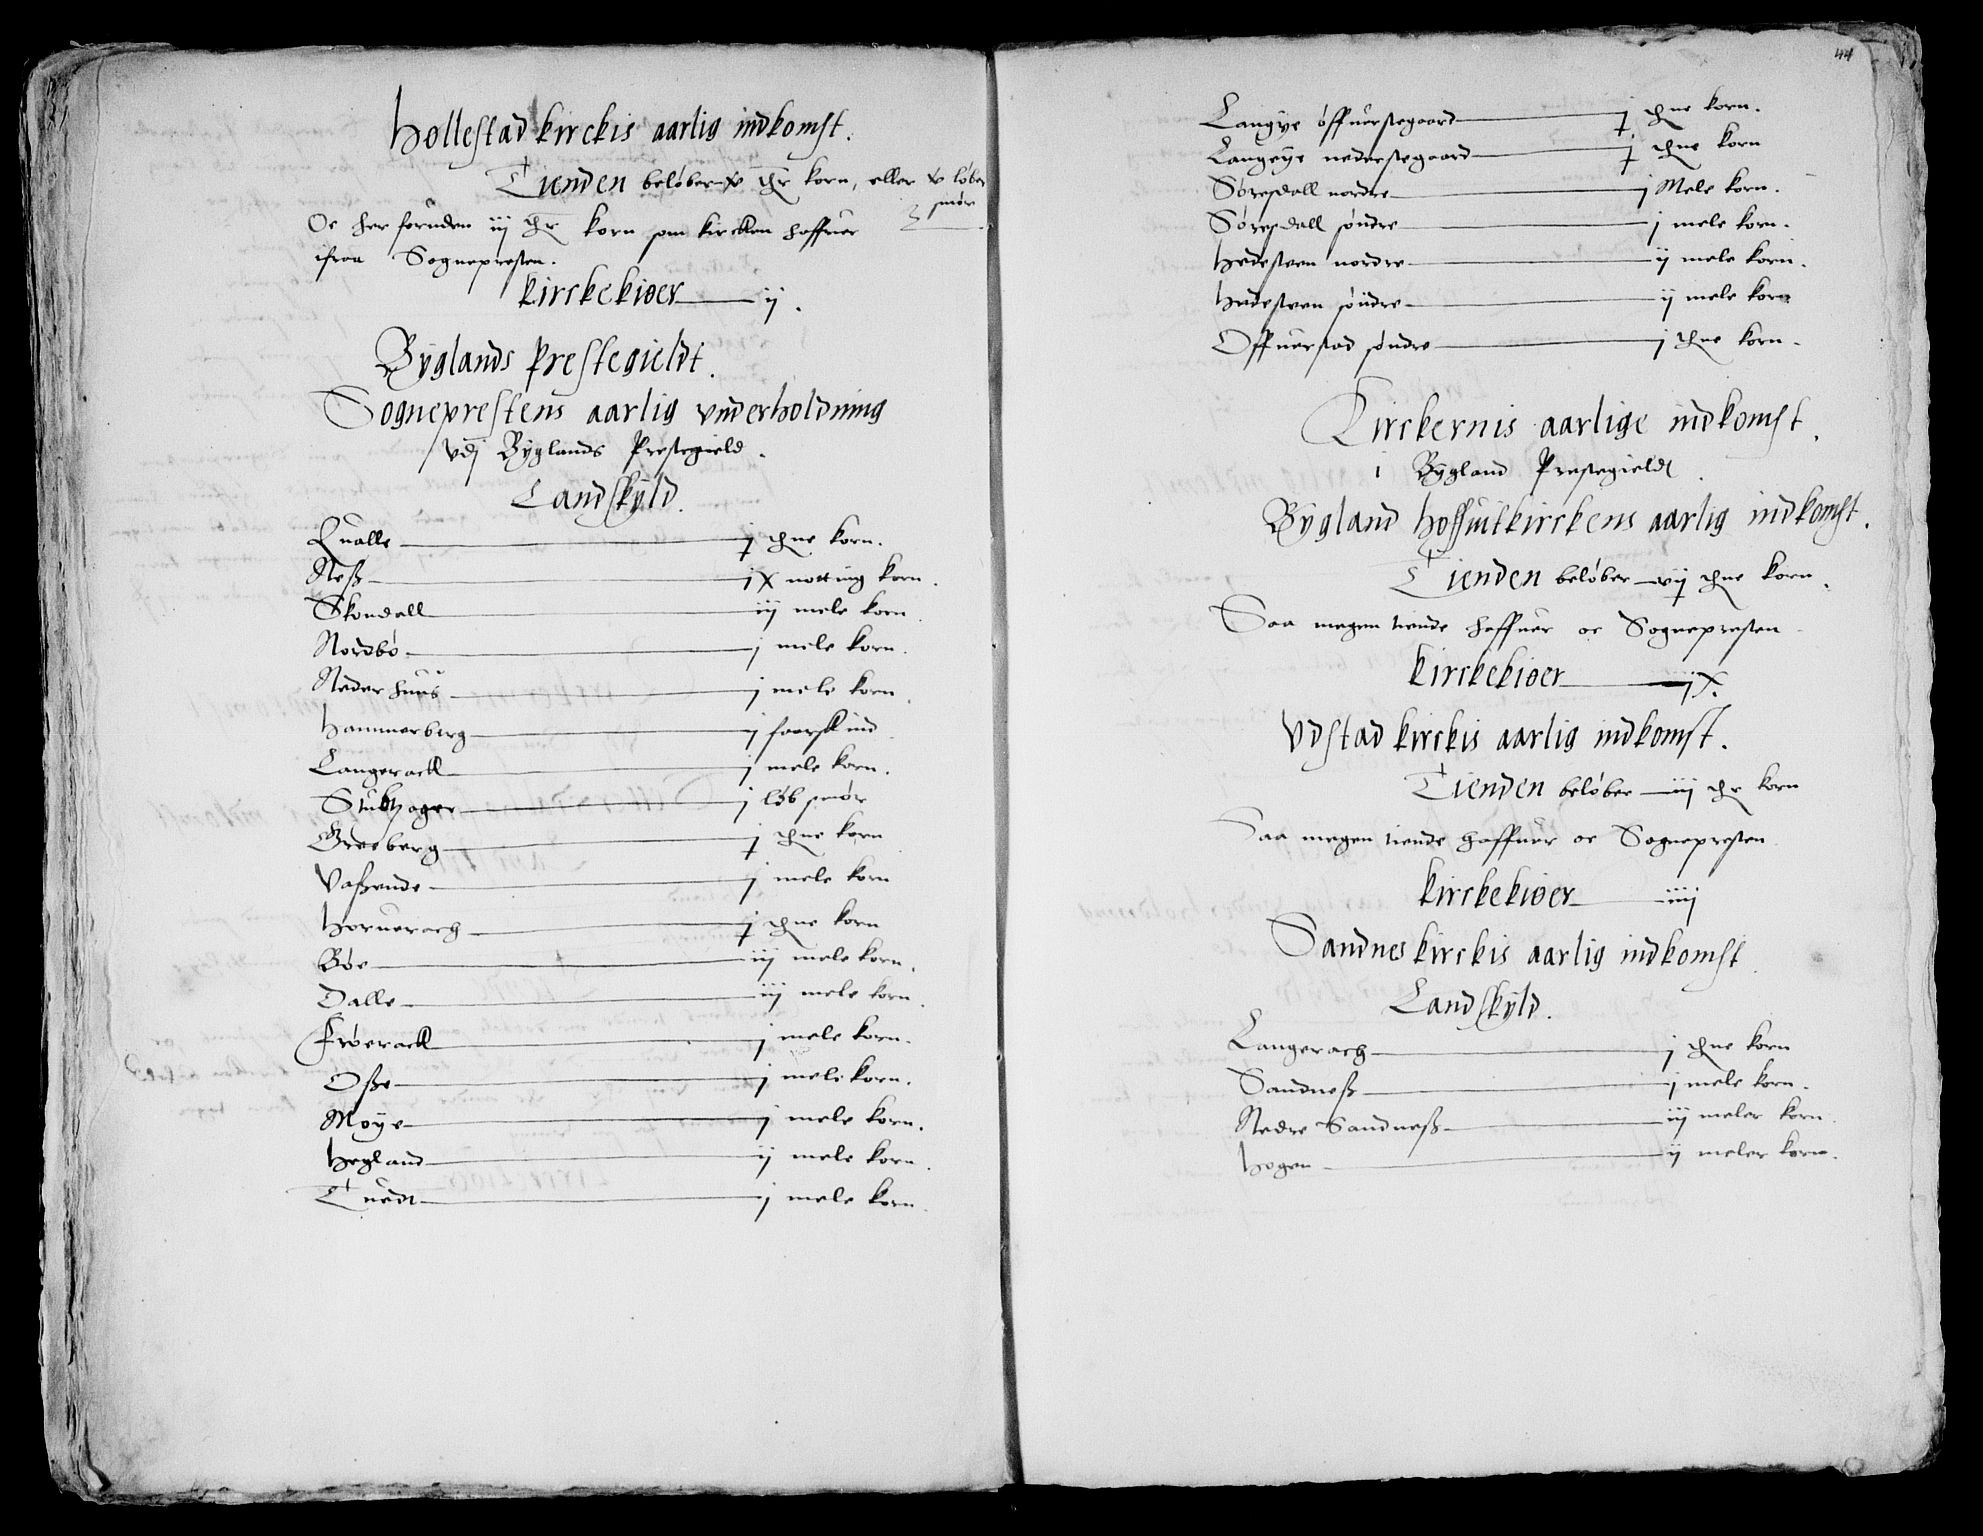 Høllestad kirckis aarlig indkomst.
Tienden beløber x thr korn, eller x løber
smør
Oc her foruden iij thr korn som kircken haffuer
ifraa Sognepresten.
kirckekiøer ij.
Byglands Prestegieldt.
Sogneprestens aarlig vnderholdning
vdj Byglands Prestegield.
Landskyld.
Qualle j thne korn.
Neß ix notting korn.
Skomdall iij mele korn.
Nordbø j mele korn.
Nederhuus j mele korn.
Hammerberg j faarskind
Langerack j mele korn.
j løb smør
Greeberg j thne korn
Vaßende j mele korn
Horuerach j thne korn
Bøe iij mele korn.
Dalle iij mele korn.
Frøerack j mele korn.
Oße j mele korn.
Moye j mele korn.
Hegland ij mele korn.
Tuedt j mele korn.
44
Langye øffuerstegaard j thne korn.
Langeye nederstegaard j thne korn
Søresdall nordre j Mele korn.
Søresdall søndre j mele korn.
Hedesteen nordre ij mele korn.
Hedesteen søndre ij mele korn
Offuerstad søndre j thne korn.
Kirckernis aarlige indkomst.
i Bygland Prestegieldt.
Bygland hoffuitkirckens aarlig indkomst.
Tienden beløber vij thne korn.
Saa megen tiende haffuer oc Sognepresten
kirckekiøer ix.
Vdstad kirckis aarlig indkomst.
Tienden beløber iiij thr korn
Saa megen tiende haffuer oc Sognepresten
kirckekiøer iiij
Sandnes kirckis aarlig indkomst
Landskyld.
Langerach j thne korn
Sandneß j mele korn.
Nedre Sandneß iij meler korn.
Hogen ij meler korn.